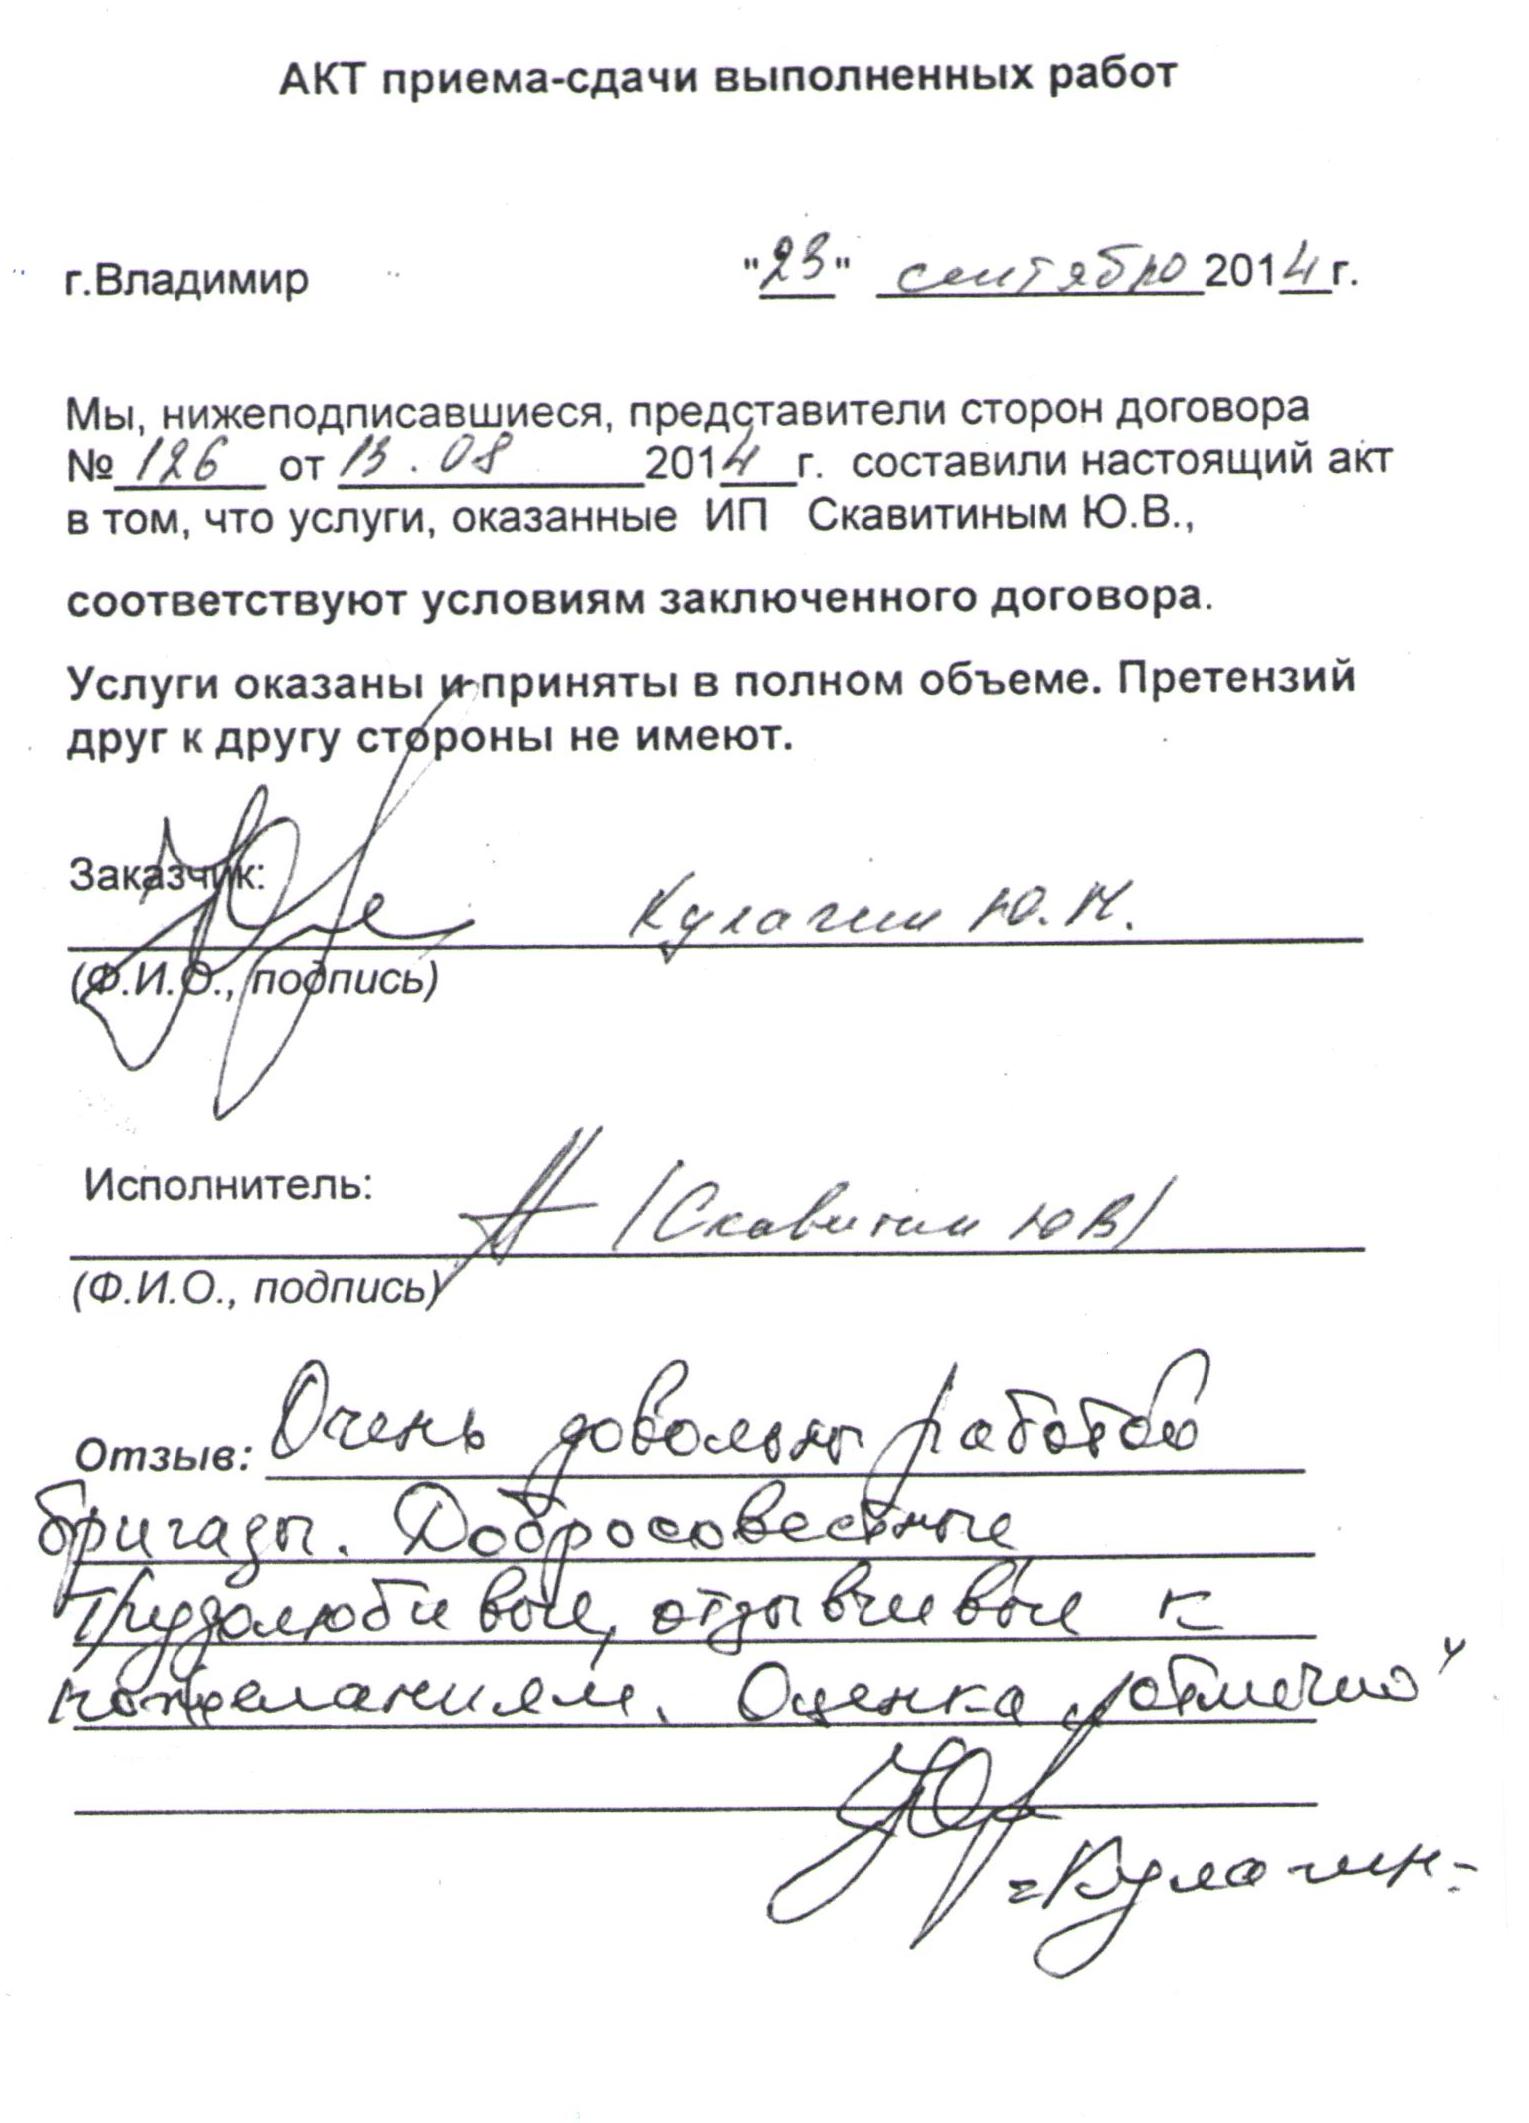 АКТ приема-сдачи выполненных работ
г.Владимир "23" сентября 2014 г.
Мы, нижеподписавшиеся, представители сторон договора
№ 126 от 13.08 2014 г. составили настоящий акт
в том, что услуги, оказанные ИП Скавитиным Ю.В.,
соответствуют условиям заключенного договора.
Услуги оказаны и приняты в полном объеме. Претензий
друг к другу стороны не имеют.
Заказчик:
Кулагин Ю.М.
(Ф.И.О., подпись)
Исполнитель: (Скавитин ЮВ)
(Ф.И.О., подпись)
Отзыв: Очень довольны работой
бригады. Добросовестные
трудолюбивые, отзывчивые к
пожеланиям. Оценка „отлично"
=Кулагин=